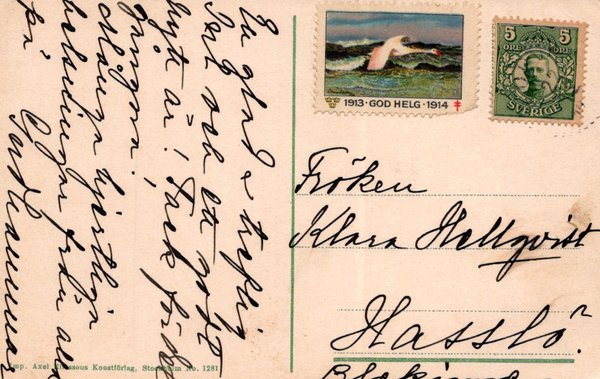 En glad o treflig
Jul och ett godt
nytt år! Tack för
Många hjertliga
helsningar från alla
på
1913 · GOD HELG · 1914
5 5
ÖRE ÖRE
SVERIGE
Fröken
Klara Hellqvist
Hasslö
Blekinge
mp. Axel Eliassons Konstförlag, Stockholm No. 1281